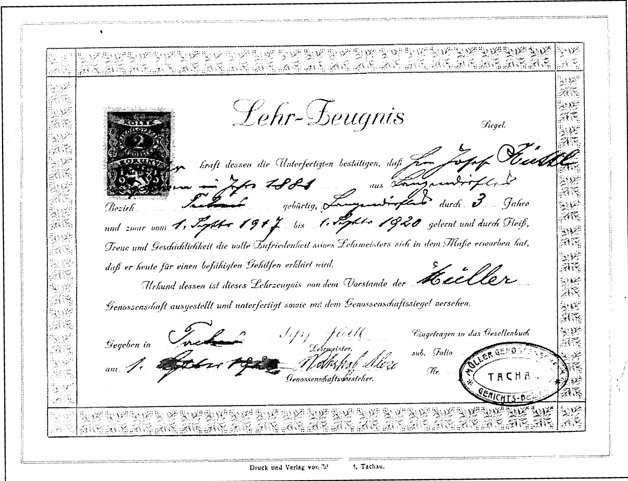 Lehr-Zeugnis
Siegel.
KOLEK
2
KORUNY
kraft dessen die Unterfertigten bestätigen, daß Herr Josef
im Jahr 1881 aus
Bezirk Tachau gebürtig, durch 3 Jahre
und zwar vom 1. Septbr 1917 bis 1. Septbr 1920 gelernt und durch Fleiß,
Treue und Geschicklichkeit die volle Zufriedenheit seines Lehrmeisters sich in dem Maße erworben hat,
daß er heute für einen befähigten Gehilfen erklärt wird.
Urkund dessen ist dieses Lehrzeugnis von dem Vorstande der Müller
Genossenschaft ausgestellt und unterfertigt sowie mit dem Genossenschaftssiegel versehen.
Gegeben in Tachau
Eingetragen in das Gesellenbuch
Lehrmeister.
sub. Folio
am 1.
Nr.
Genossenschaftsvorsteher.
MÜLLER GENOSSENSCHAFT
TACHA
GERICHTS-BEZ
Druck und Verlag von
1, Tachau.